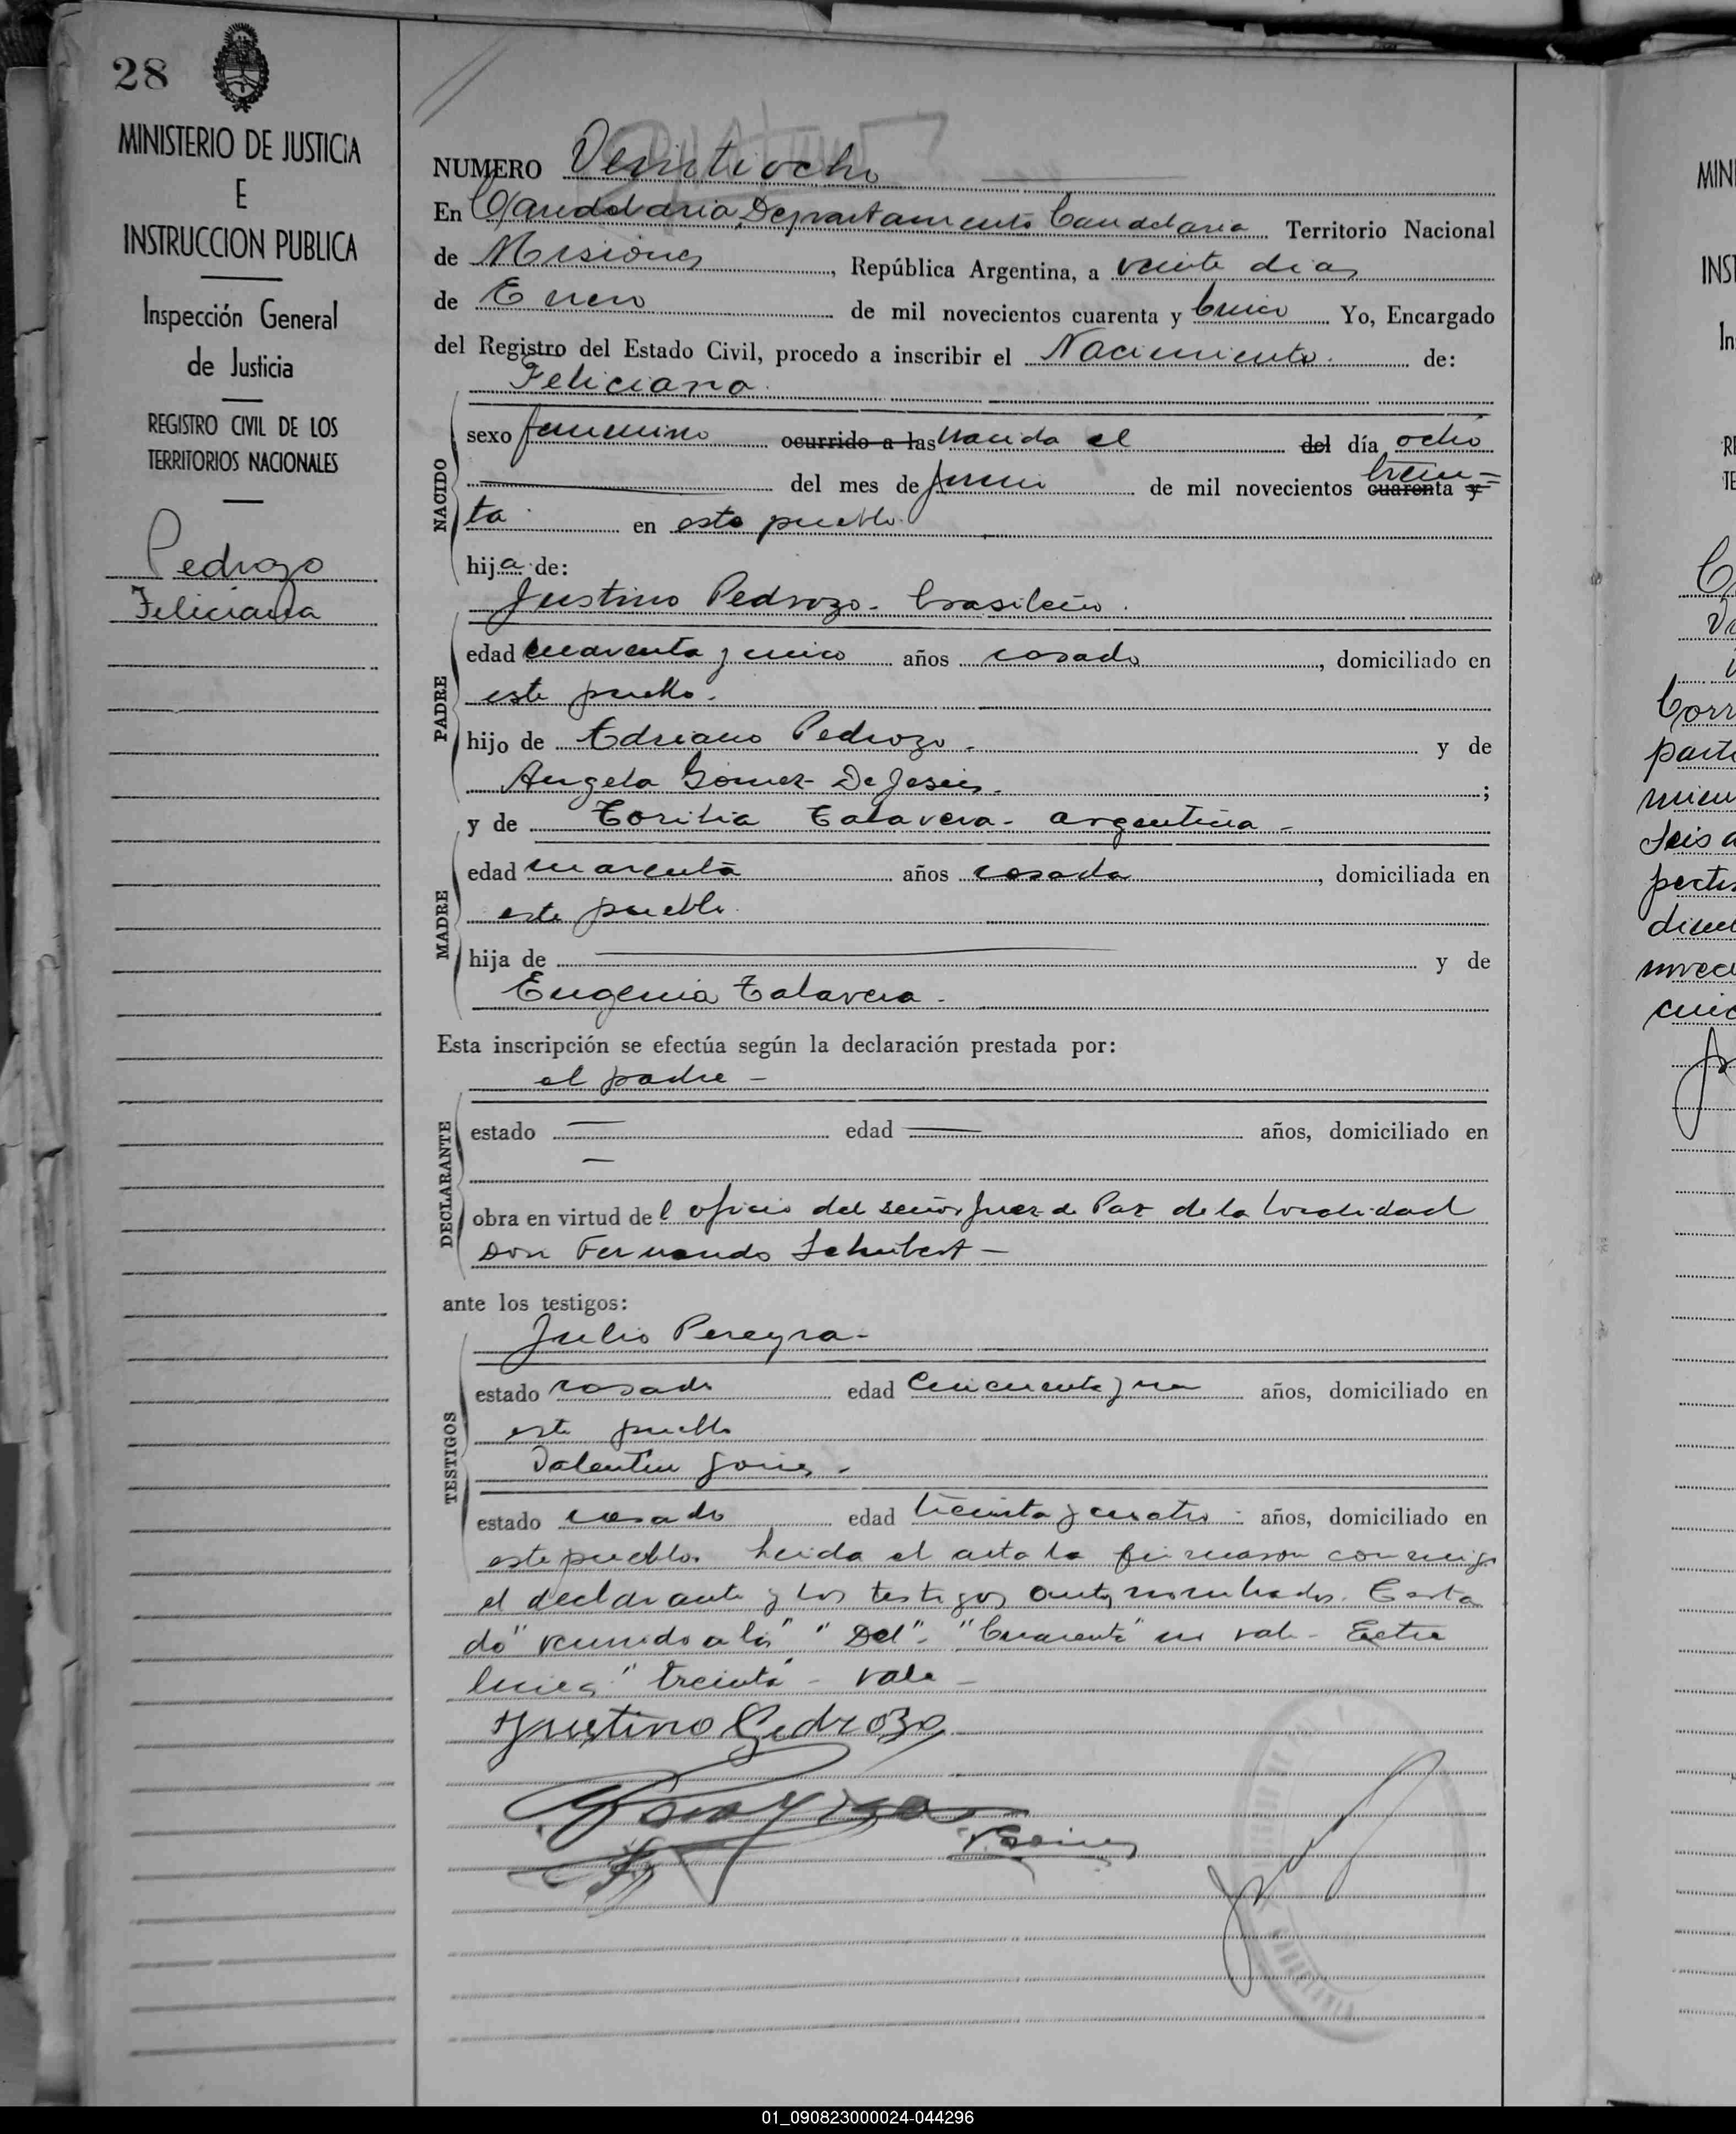 28
MINISTERIO DE JUSTICIA
E
INSTRUCCION PUBLICA
Inspección General
de Justicia
REGISTRO CIVIL DE LOS
TERRITORIOS NACIONALES
Pedrozo
Feliciana
NUMERO Veintiocho
En Candelaria, Departamento Candelaria Territorio Nacional
de Misiones, República Argentina, a veinte dias
de Enero de mil novecientos cuarenta y cinco Yo, Encargado
del Registro del Estado Civil, procedo a inscribir el Nacimiento. de:
Feliciana.
NACIDO
sexo femenino ocurrido a las nacida el del día ocho
del mes de junio de mil novecientos cuarenta y trein=
ta en este pueblo.
hija de:
Justino Pedrozo - brasileño.
PADRE
edad cuarenta y cinco años casado, domiciliado en
este pueblo.
hijo de Adriano Pedrozo - y de
Angela Gomez De Jesús.;
MADRE
y de Toribia Talavera - argentina -
edad cuarenta años casada, domiciliada en
este pueblo.
hija de y de
Eugenia Talavera -
Esta inscripción se efectúa según la declaración prestada por:
el padre -
DECLARANTE
estado edad años, domiciliado en
obra en virtud del oficio del señor Juez de Paz de la localidad
Don Fernando Schubert -
ante los testigos:
TESTIGOS
Julio Pereyra -
estado casado edad cincuenta y años, domiciliado en
este pueblo
Valentin
estado casado edad treinta y cuatro - años, domiciliado en
este pueblo. Leida el acta la firmaron conmigo
el declarante y los testigos antes nombrados. Testa
do "ocurrido a las" "Del" - "Cuarenta" no vale - Entre
lineas "treinta" - vale -
Justino Pedrozo
MIN
INST
In
RE
TE
Corr
part
mien
Seis a
pert
novec
01_090823000024-044296